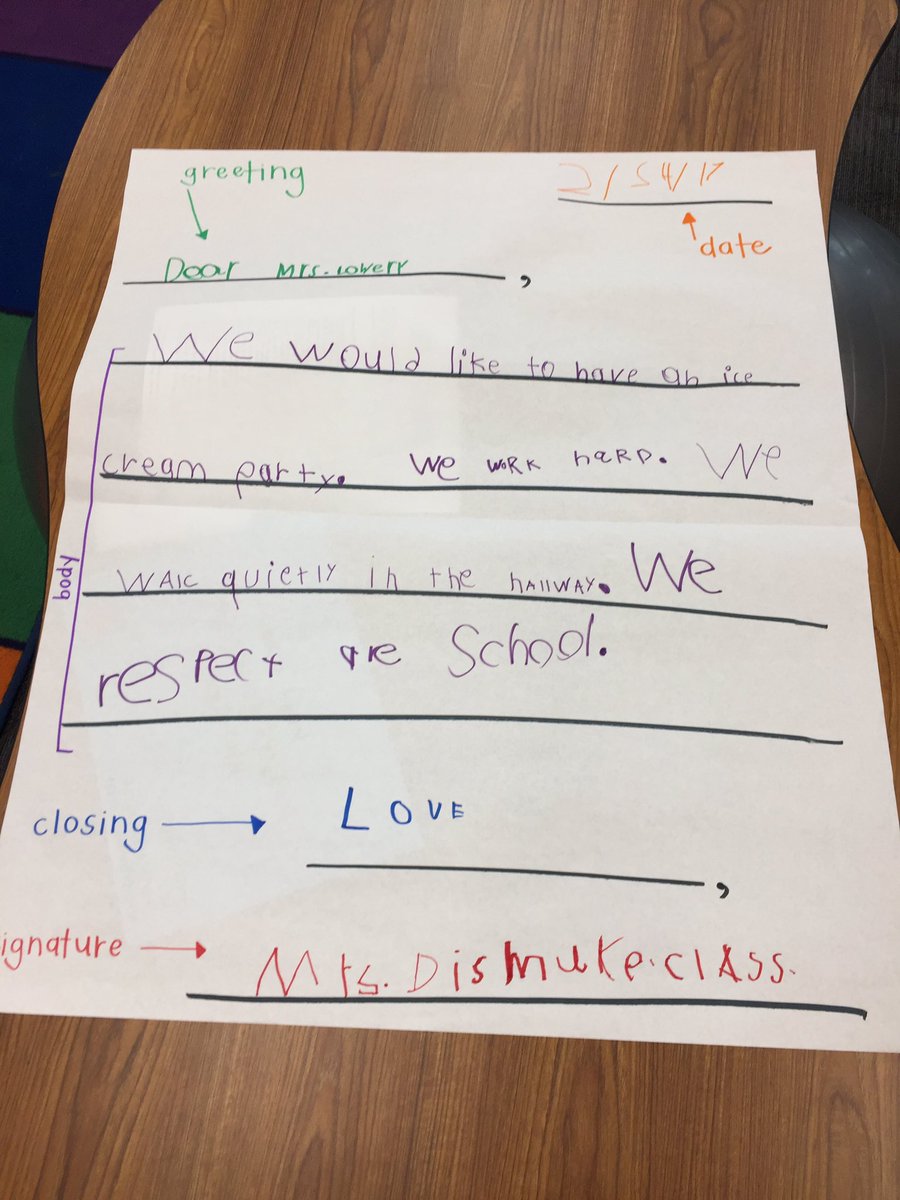 greeting
2/54/17
date
Dear Mrs. Lowery,
We would like to have an ice
cream party. We work harD. We
WAlc quietly in the hallway. We
resPect are School.
body
closing
Love,
ignature
Mrs. Dismuke.clAss.